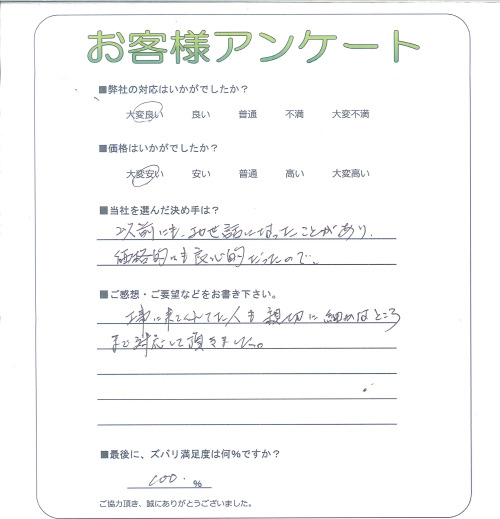 お客様アンケート
■弊社の対応はいかがでしたか？
大変良い 良い 普通 不満 大変不満
■価格はいかがでしたか？
大変安い 安い 普通 高い 大変高い
■当社を選んだ決め手は？
以前にも、お世話になったことがあり、
価格的にも良心的だったので。
■ご感想・ご要望などをお書き下さい。
工事に来てくれてた人も親切に細かなところ
まで対応して頂きました。
■最後に、ズバリ満足度は何％ですか？
100. ％
ご協力頂き、誠にありがとうございました。